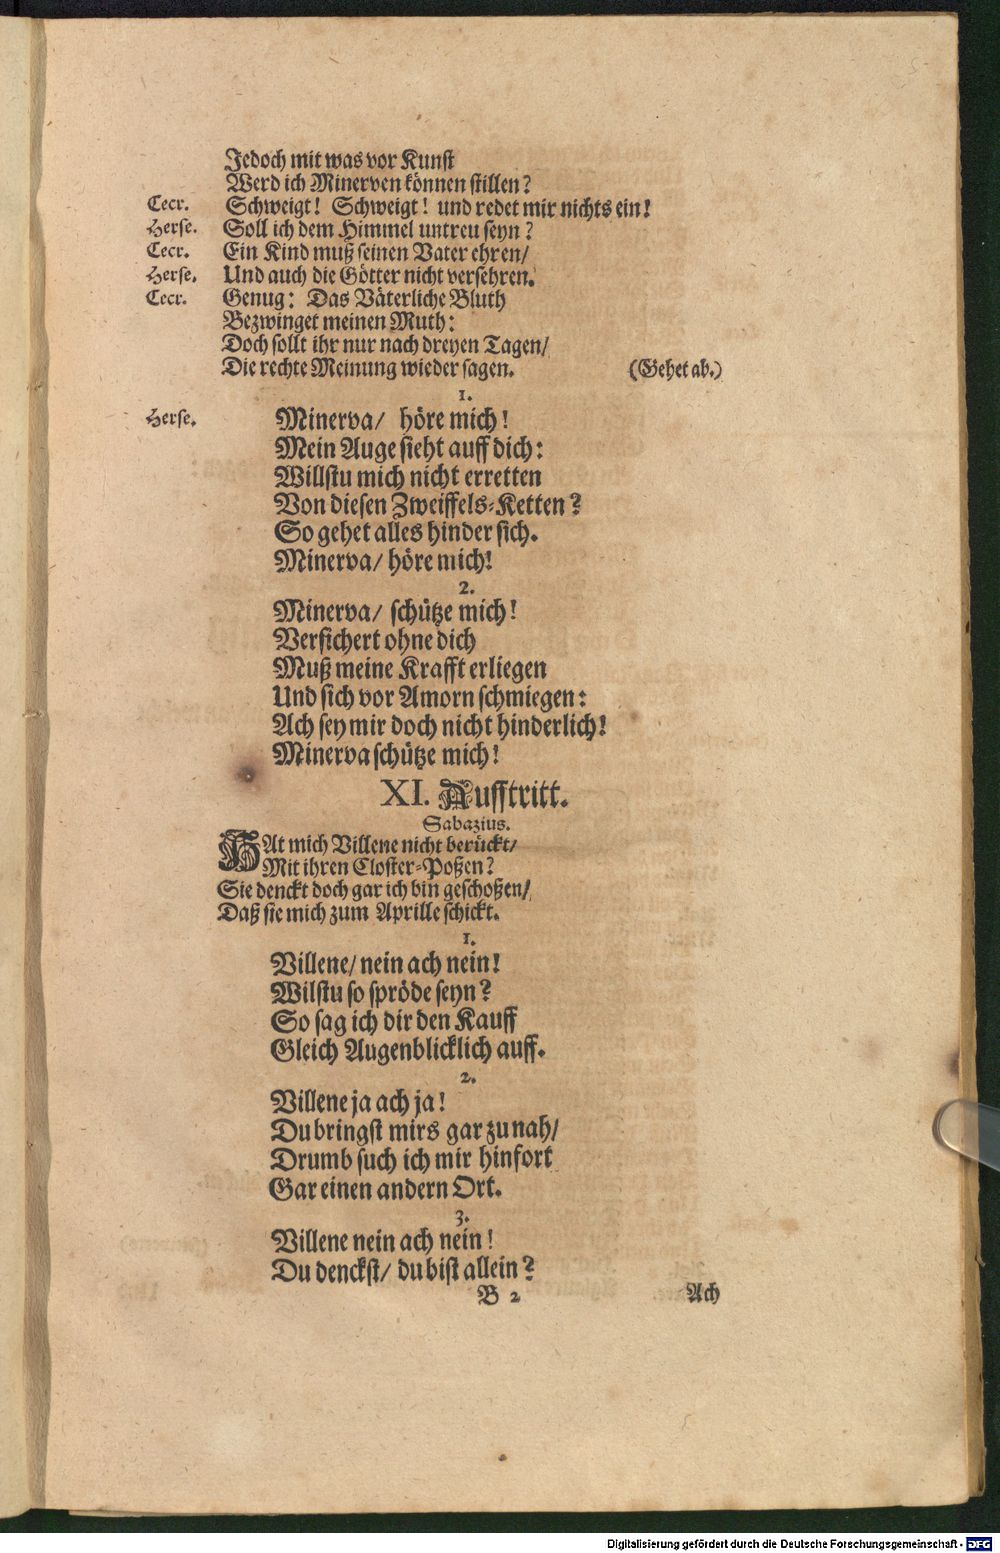 Jedoch mit was vor Kunst
Werd ich Minerven können stillen?
Cecr. Schweigt! Schweigt! und redet mir nichts ein!
Herse. Soll ich dem Himmel untreu seyn?
Cecr. Ein Kind muß seinen Vater ehren/
Herse. Und auch die Götter nicht versehren.
Cecr. Genug: Das Väterliche Bluth
Bezwinget meinen Muth:
Doch sollt ihr nur nach dreyen Tagen/
Die rechte Meinung wieder sagen. (Gehet ab.)
1.
Herse. Minerva/ höre mich!
Mein Auge sieht auff dich:
Willstu mich nicht erretten
Von diesen Zweiffels-Ketten?
So gehet alles hinder sich.
Minerva/ höre mich!
2.
Minerva/ schütze mich!
Versichert ohne dich
Muß meine Krafft erliegen
Und sich vor Amorn schmiegen:
Ach sey mir doch nicht hinderlich!
Minerva schütze mich!
XI. Aufftritt.
Sabazius.
HAt mich Villene nicht berückt/
Mit ihren Closter-Poßen?
Sie denckt doch gar ich bin geschoßen/
Daß sie mich zum Aprille schickt.
1.
Villene/ nein ach nein!
Wilstu so spröde seyn?
So sag ich dir den Kauff
Gleich Augenblicklich auff.
2.
Villene ja ach ja!
Du bringst mirs gar zu nah/
Drumb such ich mir hinfort
Gar einen andern Ort.
3.
Villene nein ach nein!
Du denckst/ du bist allein?
B 2 Ach
Digitalisierung gefördert durch die Deutsche Forschungsgemeinschaft - DFG